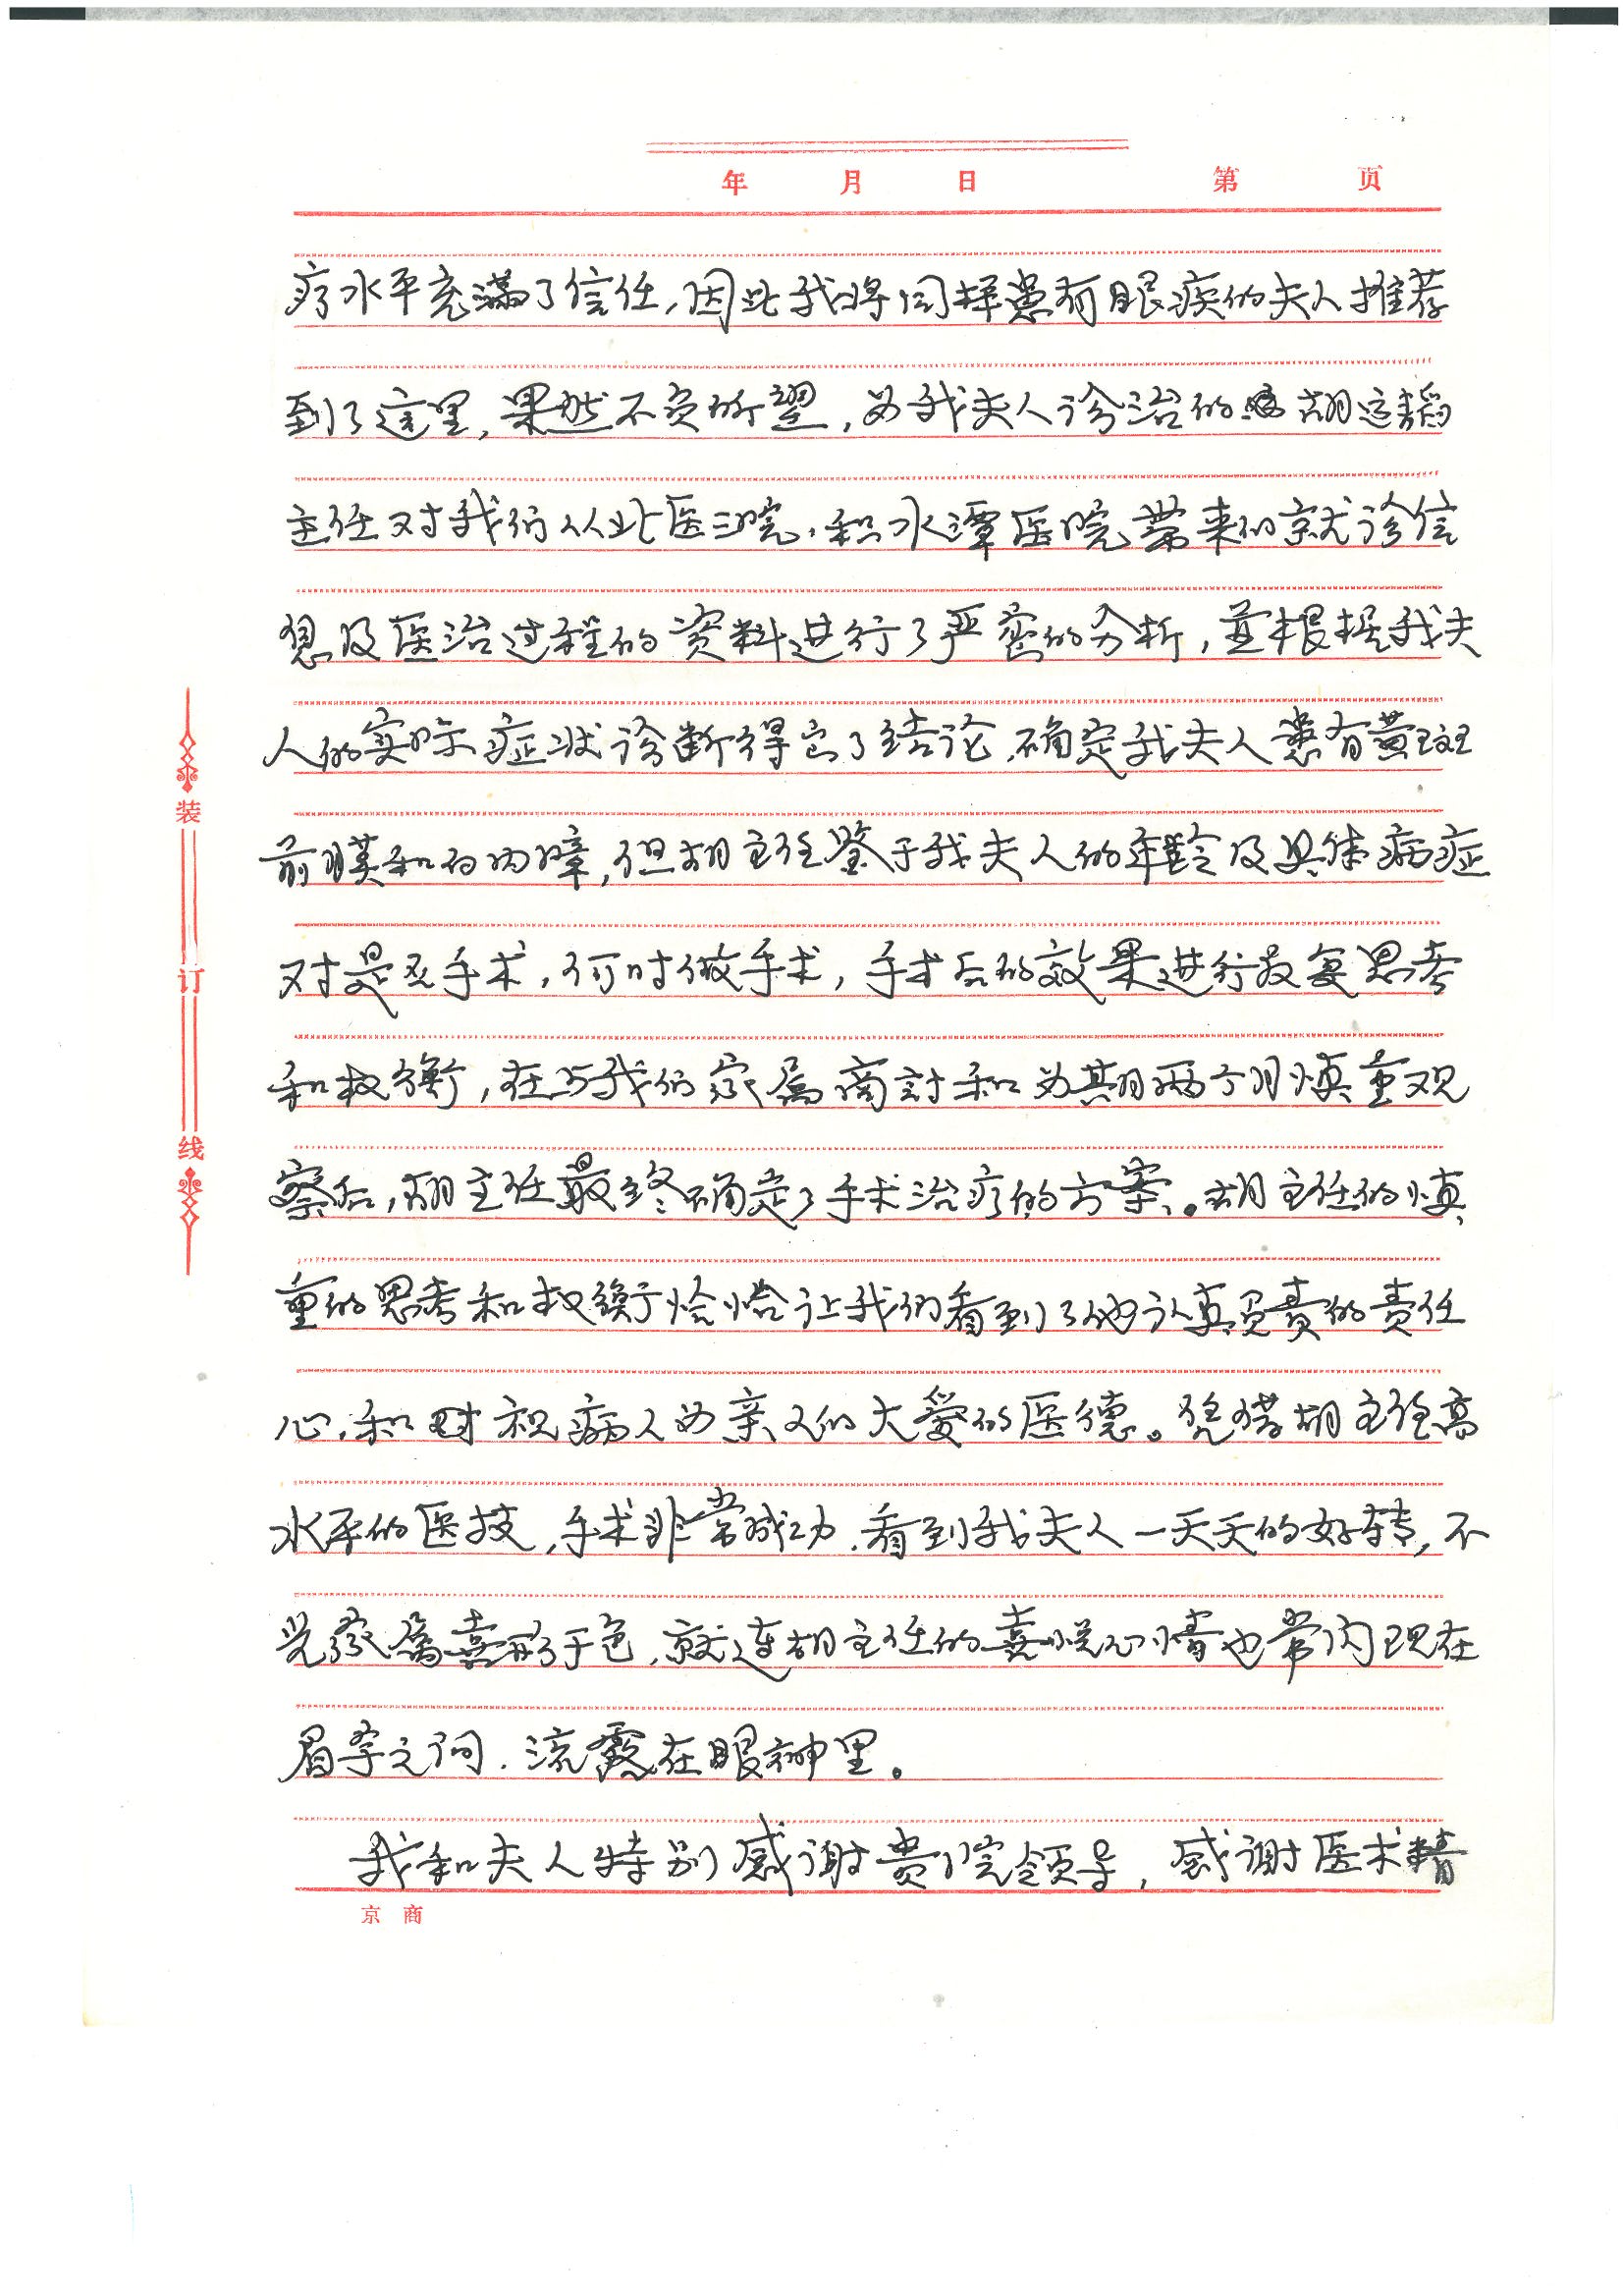 年 月 日 第 页
疗水平充满了信任,因此我将同样患有眼疾的夫人推荐
到了这里,果然不负所望,为我夫人诊治的胡运韬
主任对我们从北医三院,积水潭医院带来的就诊信
息及医治过程的资料进行了严密的分析,并根据我夫
人的实际症状诊断得出了结论,确定我夫人患有黄斑
前膜和白内障,但胡主任鉴于我夫人的年龄及具体病症
对是否手术,何时做手术,手术后的效果进行反复思考
和权衡,在与我们家属商討和为期两个月慎重观
察后,胡主任最终确定了手术治疗的方案。胡主任的慎
重的思考和权衡恰恰让我们看到了他认真负责的责任
心,和视病人为亲人的大爱的医德。凭借胡主任高
水平的医技,手术非常成功,看到我夫人一天天的好转,不
光家属喜形于色,就连胡主任的喜悦心情也常闪现在
眉宇之间,流露在眼神里。
我和夫人特别感谢贵院领导,感谢医术精
装
订
线
京 商